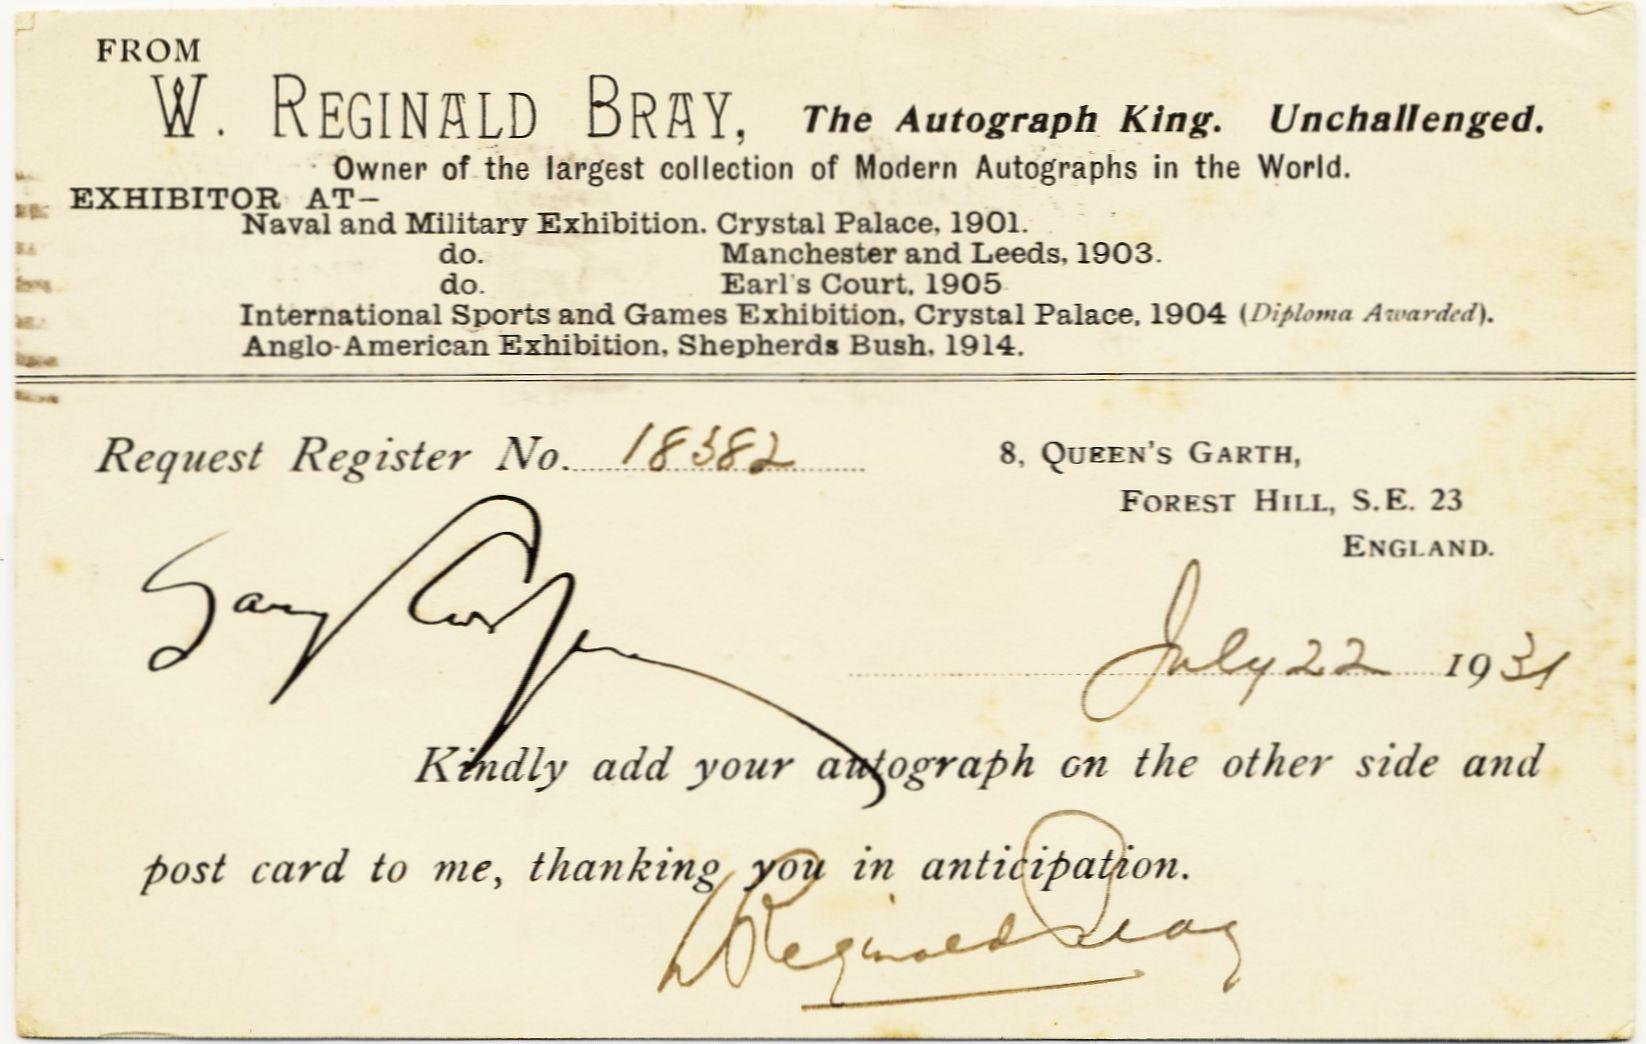 FROM
W. REGINALD BRAY, The Autograph King. Unchallenged.
Owner of the largest collection of Modern Autographs in the World.
EXHIBITOR AT—
Naval and Military Exhibition. Crystal Palace, 1901.
do. Manchester and Leeds, 1903.
do. Earl's Court, 1905
International Sports and Games Exhibition, Crystal Palace, 1904 (Diploma Awarded).
Anglo-American Exhibition, Shepherds Bush, 1914.
Request Register No. 18382
8, QUEEN'S GARTH,
FOREST HILL, S.E. 23
ENGLAND.
Gary Cooper
July 22 1931
Kindly add your autograph on the other side and
post card to me, thanking you in anticipation.
W Reginald Bray